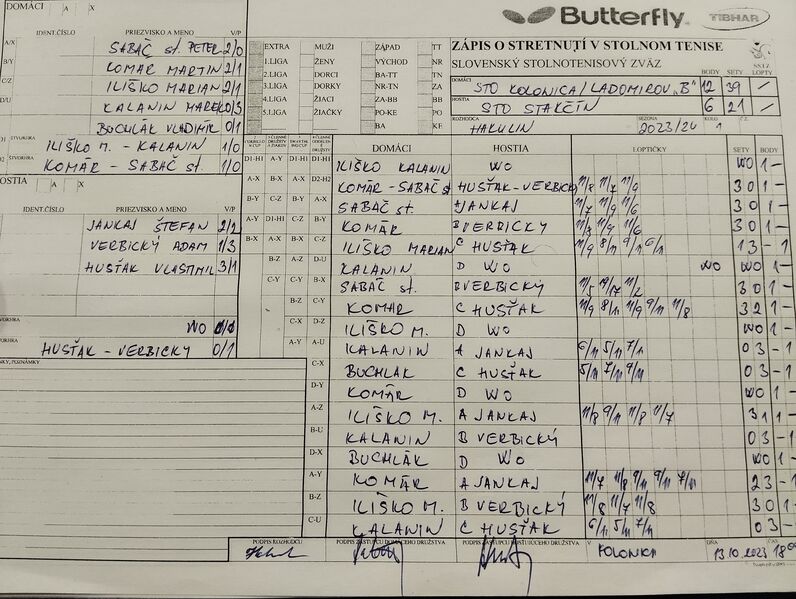 DOMÁCI A X
Butterfly TIBHAR
IDENT.ČÍSLO PRIEZVISKO A MENO V/P
A/X SABAČ st. PETER 2/0
B/Y KOMÁR MARTIN 2/1
C/Z ILIŠKO MARIAN 2/1
D/U KALANIN MAREK 0/3
BUCHLÁK VLADIMÍR 0/1
ILIŠKO M. - KALANIN 1/0
KOMÁR - SABAČ st. 1/0
HOSTIA A X
IDENT.ČÍSLO PRIEZVISKO A MENO V/P
JANKAJ ŠTEFAN 2/2
VERBICKÝ ADAM 1/3
HUSŤÁK VLASTIMIL 3/1
WO
HUSŤÁK - VERBICKY 0/1
POZNÁMKY
EXTRA MUŽI ZÁPAD TT
1.LIGA ŽENY VÝCHOD NR
2.LIGA DORCI BA-TT TN
3.LIGA DORKY NR-TN ZA
4.LIGA ŽIACI ZA-BB BB
5.LIGA ŽIAČKY PO-KE PO
BA KE
ZÁPIS O STRETNUTÍ V STOLNOM TENISE
SLOVENSKÝ STOLNOTENISOVÝ ZVÄZ
BODY SETY LOPTY
DOMÁCI STO KOLONICA/LADOMIROV „B" 12 39 /
HOSTIA STO STAKČÍN 6 21 /
ROZHODCA HAKULIN SEZÓNA 2023/24 KOLO 1 Č.
DOMÁCI HOSTIA LOPTIČKY SETY BODY
D1-H1 A-Y D1-H1 D1-H1 ILIŠKO KALANIN WO WO 1 -
A-X B-X A-X D2-H2 KOMÁR - SABAČ st HUSŤÁK - VERBICKÝ 11/8 11/7 11/9 3 0 1 -
B-Y C-Z B-Y A-X SABAČ st. A JANKAJ 11/7 11/9 11/6 3 0 1 -
A-Y D1-H1 C-Z B-Y KOMÁR B VERBICKY 11/9 11/6 3 0 1 -
B-X A-X B-X C-Z ILIŠKO MARIAN C HUSŤÁK 11/9 8/11 9/11 6/11 1 3 - 1
B-Z A-Z D-U KALANIN D WO WO WO 1 -
C-Y C-Y B-X SABAČ st. B VERBICKÝ 11/2 3 0 1 -
B-Z C-Y KOMÁR C HUSŤÁK 11/9 8/11 11/9 9/11 11/8 3 2 1 -
C-X D-Z ILIŠKO M. D WO WO 1 -
A-Y A-U KALANIN A JANKAJ 6/11 5/11 7/11 0 3 - 1
C-X BUCHLÁK C HUSŤÁK 5/11 7/11 9/11 0 3 - 1
D-Y KOMÁR D WO WO 1 -
A-Z ILIŠKO M. A JANKAJ 11/8 9/11 11/8 11/7 3 1 1 -
B-U KALANIN B VERBICKÝ 0 3 - 1
D-X BUCHLÁK D WO WO 1 -
A-Y KOMÁR A JANKAJ 11/7 11/8 9/11 9/11 7/11 2 3 - 1
B-Z ILIŠKO M. B VERBICKÝ 11/8 11/7 11/8 3 0 1 -
C-U KALANIN C HUSŤÁK 6/11 5/11 7/11 0 3 - 1
PODPIS ROZHODCU PODPIS ZÁSTUPCU DOMÁCEHO DRUŽSTVA PODPIS ZÁSTUPCU HOSŤUJÚCEHO DRUŽSTVA V DŇA ČAS
13.10.2023